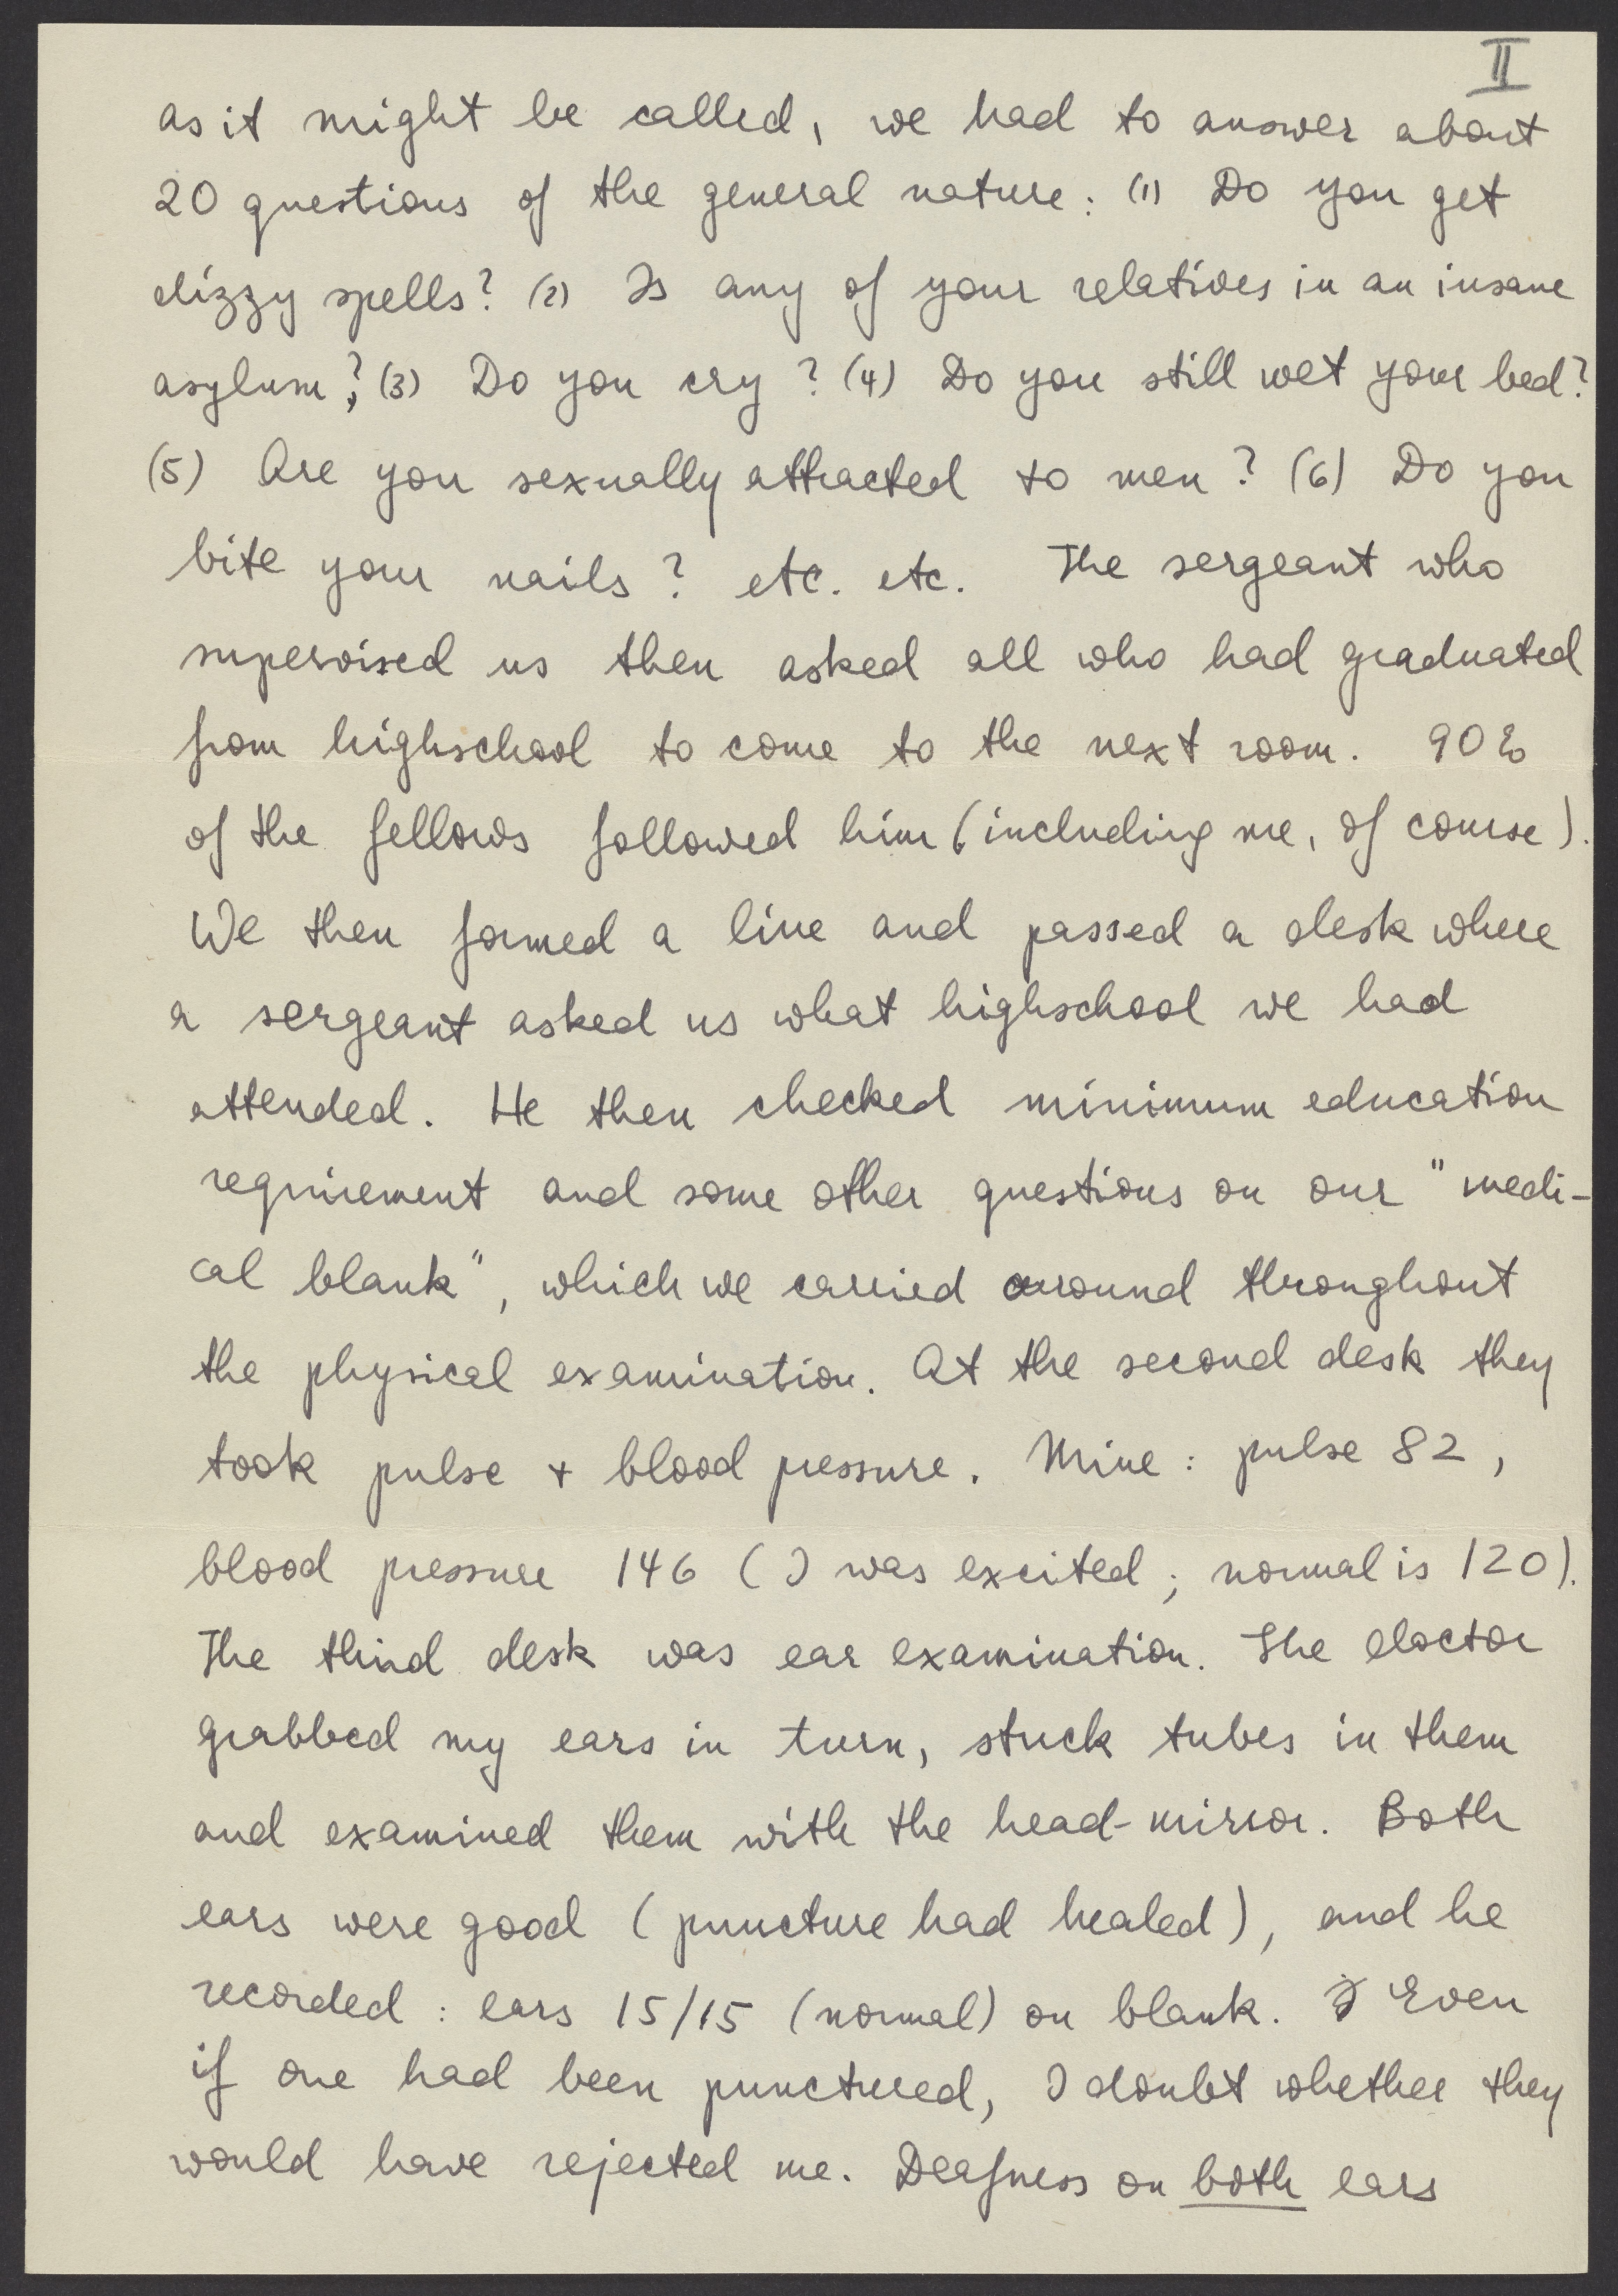 II
as it might be called, we had to answer about
20 questions of the general nature: (1) Do you get
dizzy spells? (2) Is any of your relatives in an insane
asylum?; (3) Do you cry? (4) Do you still wet your bed?
(5) Are you sexually attracted to men? (6) Do you
bite your nails? etc. etc. The sergeant who
supervised us then asked all who had graduated
from highschool to come to the next room. 90%
of the fellows followed him (including me, of course).
We then formed a line and passed a desk where
a sergeant asked us what highschool we had
attended. He then checked minimum education
requirement and some other questions on our "medi-
cal blank", which we carried around throughout
the physical examination. At the second desk they
took pulse + blood pressure. Mine: pulse 82,
blood pressure 146 (I was excited; normal is 120).
The third desk was ear examination. The doctor
grabbed my ears in turn, stuck tubes in them
and examined them with the head-mirror. Both
ears were good (puncture had healed), and he
recorded: ears 15/15 (normal) on blank. Even
if one had been punctured, I doubt whether they
would have rejected me. Deafness on both ears